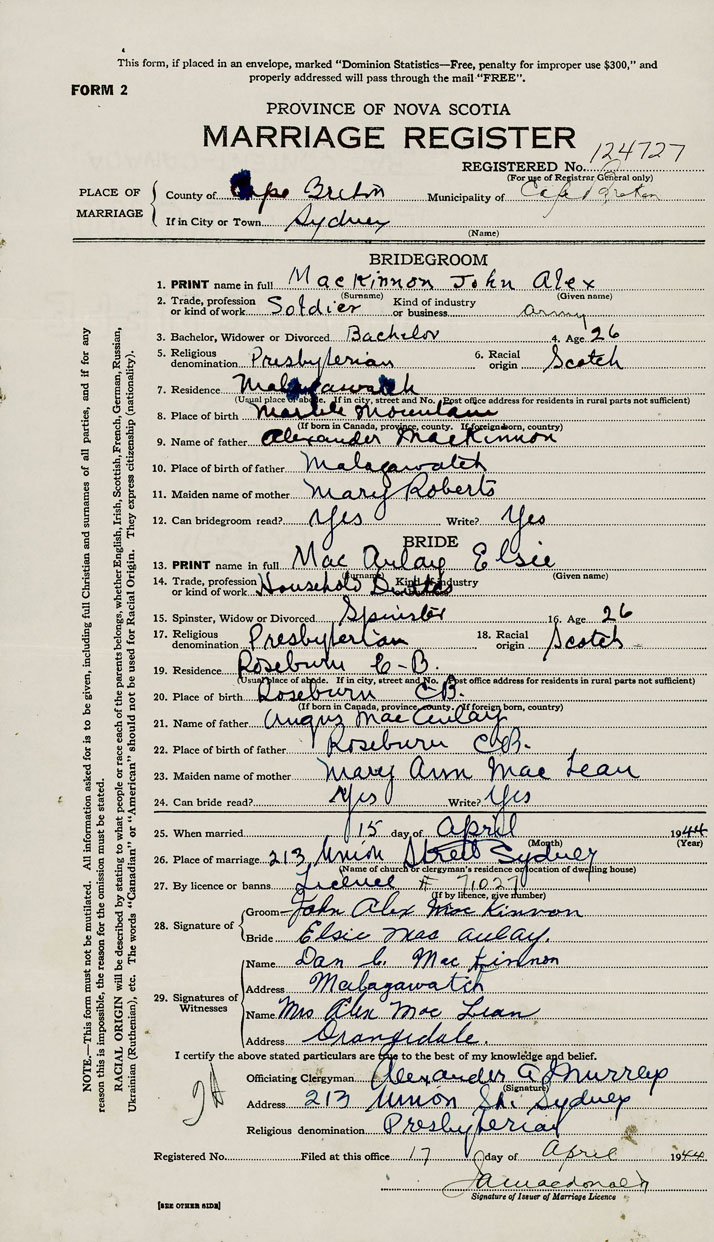 This form, if placed in an envelope, marked "Dominion Statistics—Free, penalty for improper use $300," and
properly addressed will pass through the mail "FREE".
FORM 2
PROVINCE OF NOVA SCOTIA
MARRIAGE REGISTER
REGISTERED No. 124727
(For use of Registrar General only)
PLACE OF MARRIAGE
County of Cape Breton Municipality of Cape Breton
If in City or Town Sydney
(Name)
BRIDEGROOM
1. PRINT name in full MacKinnon John Alex
(Surname) (Given name)
2. Trade, profession or kind of work Soldier Kind of industry or business army
3. Bachelor, Widower or Divorced Bachelor 4. Age 26
5. Religious denomination Presbyterian 6. Racial origin Scotch
7. Residence Malagawatch
(Usual place of abode. If in city, street and No. Post office address for residents in rural parts not sufficient)
8. Place of birth Marble Mountain
(If born in Canada, province, county. If foreign born, country)
9. Name of father Alexander MacKinnon
10. Place of birth of father Malagawatch
11. Maiden name of mother Mary Roberts
12. Can bridegroom read? Yes Write? Yes
BRIDE
13. PRINT name in full Mac Aulay Elsie
(Surname) (Given name)
14. Trade, profession or kind of work Household Duties Kind of industry or business
15. Spinster, Widow or Divorced Spinster 16. Age 26
17. Religious denomination Presbyterian 18. Racial origin Scotch
19. Residence Roseburn C-B.
(Usual place of abode. If in city, street and No. Post office address for residents in rural parts not sufficient)
20. Place of birth Roseburn CB.
(If born in Canada, province, county. If foreign born, country)
21. Name of father Angus Mac Aulay
22. Place of birth of father Roseburn C.B.
23. Maiden name of mother Mary Ann Mac Lean
24. Can bride read? Yes Write? Yes
25. When married 15 day of April 1944
(Month) (Year)
26. Place of marriage 213 Union Street Sydney
(Name of church or clergyman's residence or location of dwelling house)
27. By licence or banns Licence # 71027
(If by licence, give number)
28. Signature of
Groom John Alex Mac Kinnon
Bride Elsie Mac Aulay.
29. Signatures of Witnesses
Name Dan C. Mac Kinnon
Address Malagawatch
Name Mrs Alex Mac Lean
Address Orangedale.
I certify the above stated particulars are true to the best of my knowledge and belief.
Officiating Clergyman Alexander A. Murray
(Signature)
Address 213 Union St. Sydney
Religious denomination Presbyterian
Registered No. Filed at this office 17 day of April 1944
Signature of Issuer of Marriage Licence
[SEE OTHER SIDE]
NOTE.—This form must not be mutilated. All information asked for is to be given, including full Christian and surnames of all parties, and if for any
reason this is impossible, the reason for the omission must be stated.
RACIAL ORIGIN will be described by stating to what people or race each of the parents belongs, whether English, Irish, Scottish, French, German, Russian,
Ukrainian (Ruthenian), etc. The words "Canadian" or "American" should not be used for Racial Origin. They express citizenship (nationality).